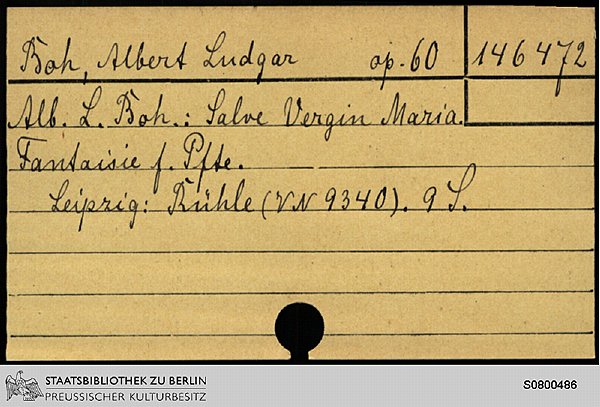 Boh, Albert Ludgar op. 60 146472
Alb. L. Boh.: Salve Vergin Maria.
Fantaisie f. Pfte.
Leipzig: Rühle (VN 9340). 9 S.
STAATSBIBLIOTHEK ZU BERLIN
PREUSSISCHER KULTURBESITZ
S0800486